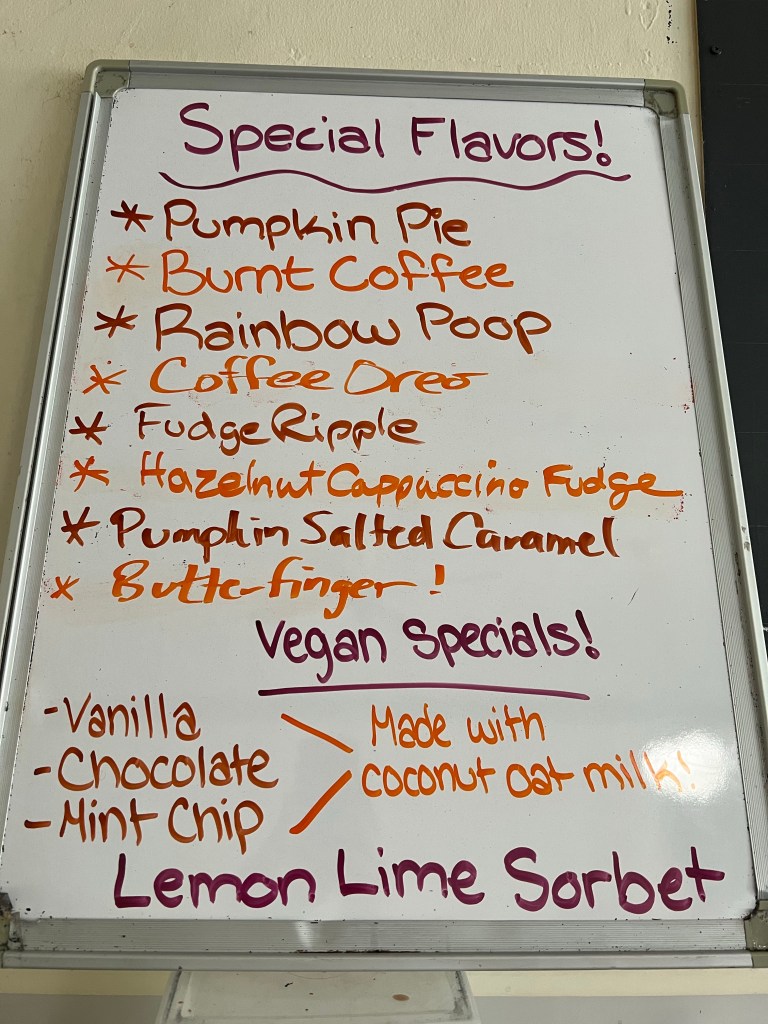 Special Flavors!
* Pumpkin Pie
* Burnt Coffee
* Rainbow Poop
* Coffee Oreo
* Fudge Ripple
* Hazelnut Cappuccino Fudge
* Pumpkin Salted Caramel
* Butterfinger!
Vegan Specials!
- Vanilla
- Chocolate
- Mint Chip
Made with
coconut oat milk!
Lemon Lime Sorbet